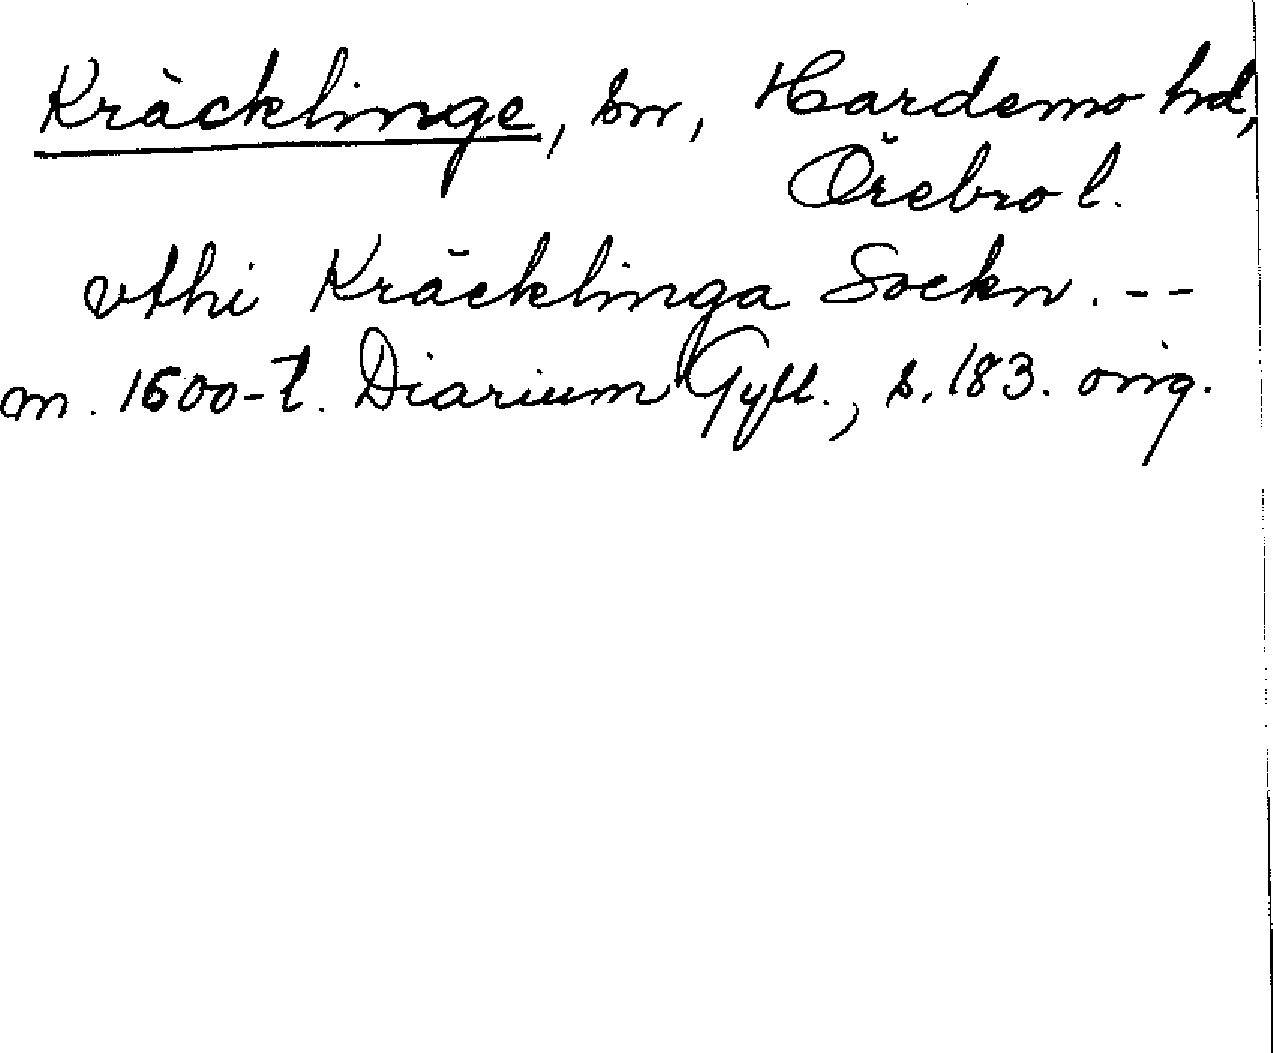 Kräcklinge, sn, Hardemo hd,
Örebro l.
vthi Kräcklinga Sockn. --
m. 1500-t. Diarium Gyll., s. 183. orig.